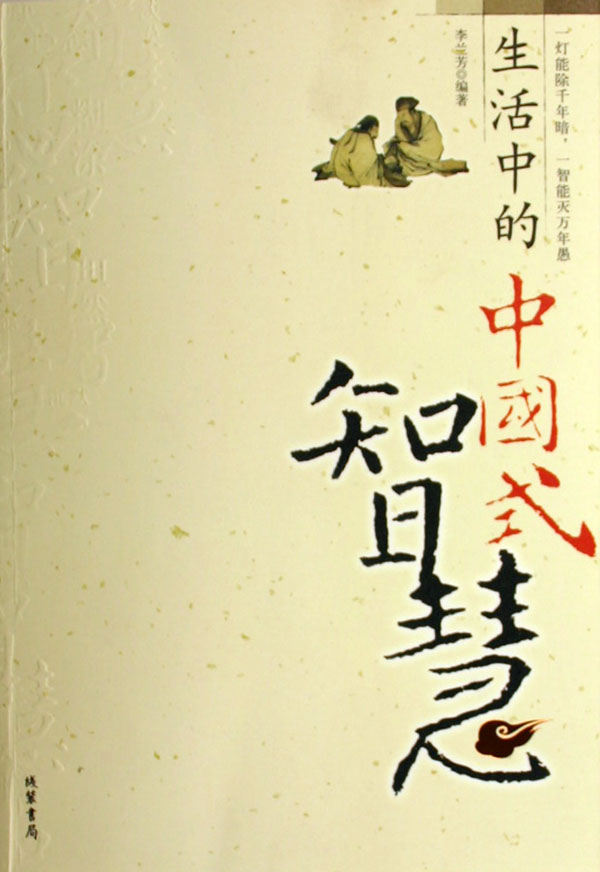 一灯能除千年暗，一智能灭万年愚
生活中的
中國式
智慧
李兰芳◎编著
线装书局